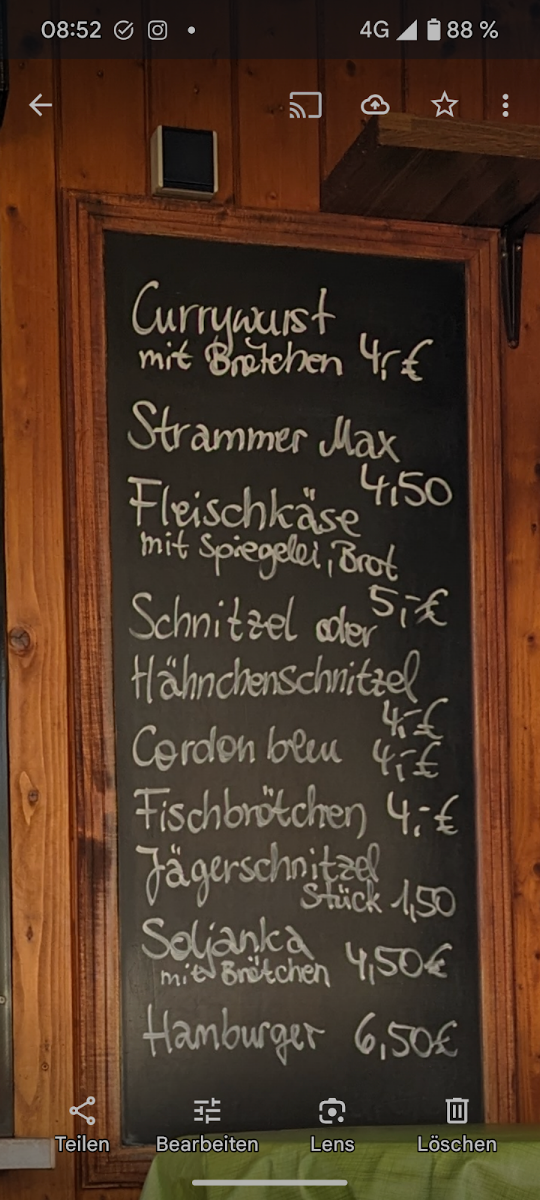 08:52 4G 88 %
Currywurst
mit Brötchen 4,- €
Strammer Max
4,50
Fleischkäse
mit Spiegelei, Brot
5,- €
Schnitzel oder
Hähnchenschnitzel
4,- €
Cordon bleu 4,- €
Fischbrötchen 4,- €
Jägerschnitzel
Stück 1,50
Soljanka
mit Brötchen 4,50€
Hamburger 6,50€
Teilen Bearbeiten Lens Löschen